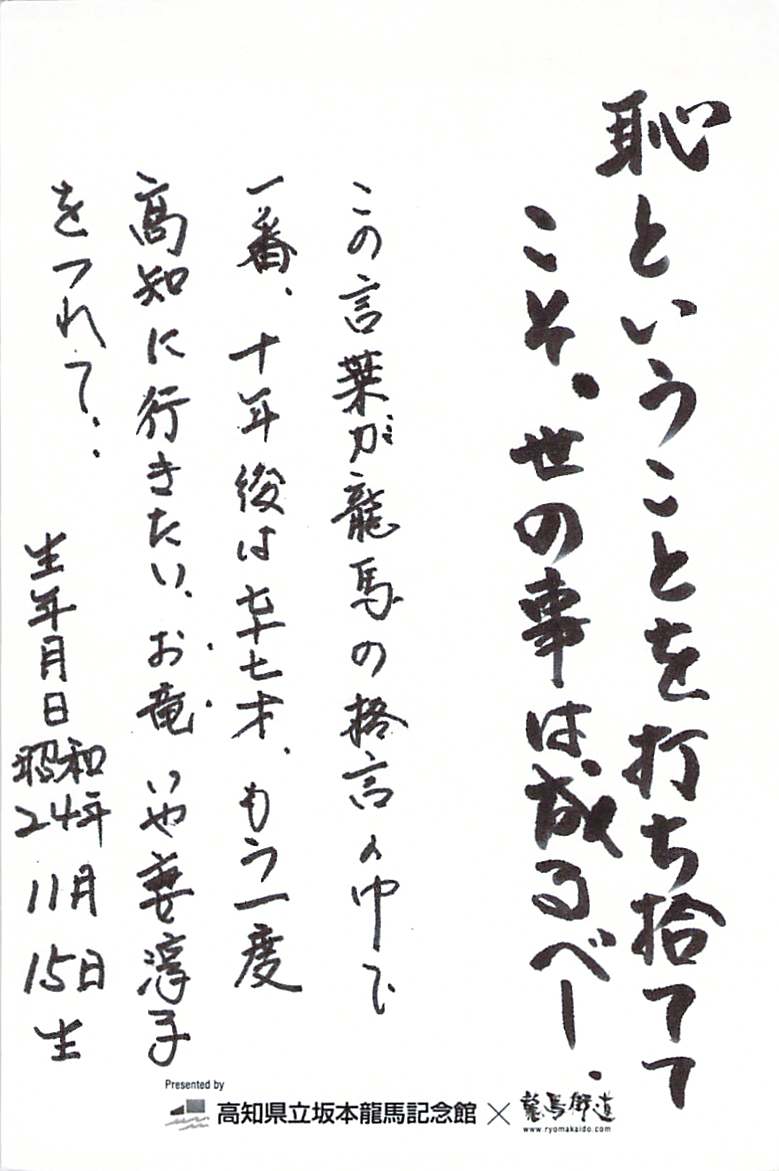 恥ということを打ち捨てて
こそ、世の事は成るべし.
この言葉が龍馬の格言の中で
一番、十年後は七十七才、もう一度
高知に行きたい、お竜いや妻淳子
をつれて..
生年月日昭和24年11月15日生
Presented by
高知県立坂本龍馬記念館×龍馬街道
www.ryomakaido.com